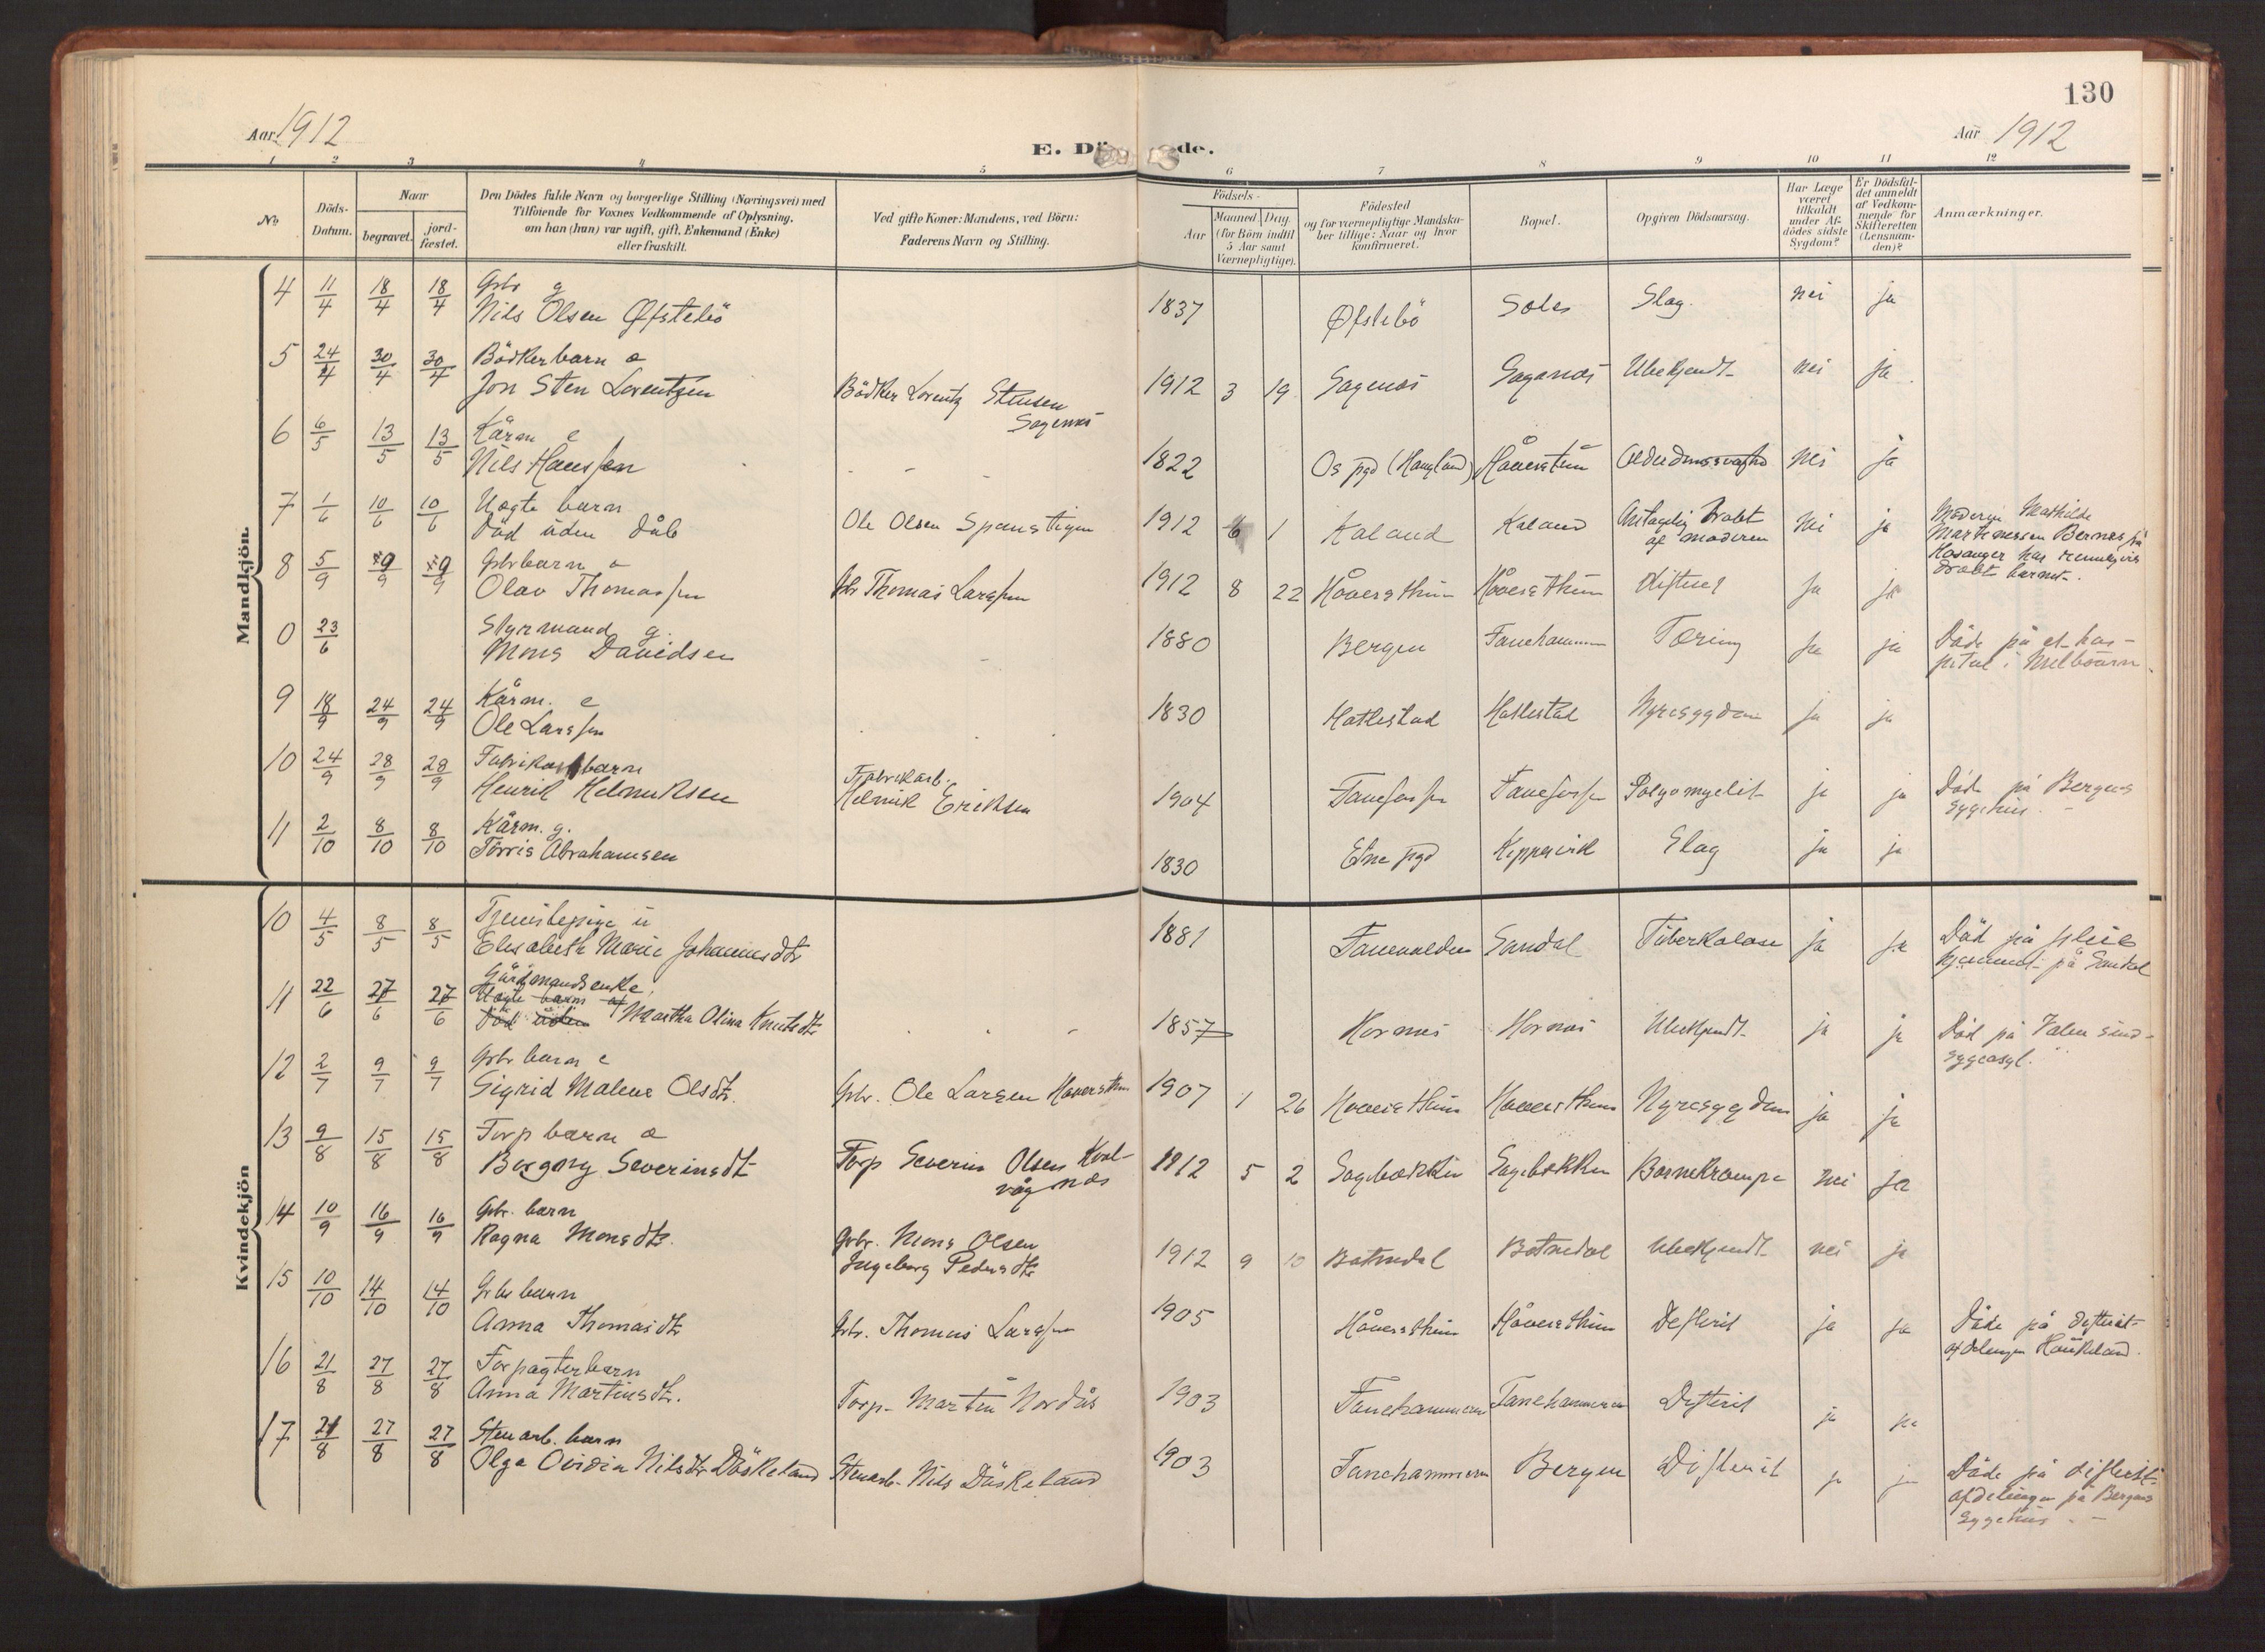 130
Aar 1912
E. Dö de.
Aar 1912
1 2 3 4 5 6 7 8 9 10 11 12
No.
Döds-Datum.
Naar
begravet.
jord-fæstet.
Den Dödes fulde Navn og borgerlige Stilling (Næringsvei) med
Tilföiende for Voxnes Vedkommende af Oplysning,
om han (hun) var ugift, gift, Enkemand (Enke)
eller fraskilt.
Ved gifte Koner: Mandens, ved Börn:
Faderens Navn og Stilling.
Födsels-
Aar
Maaned. Dag.
(for Börn indtil
5 Aar samt
Værnepligtige).
Födested
og for værnepligtige Mandska-
ber tillige: Naar og hvor
konfirmeret.
Bopæl.
Opgiven Dödsaarsag.
Har Læge
været
tilkaldt
under Af-
dödes sidste
Sygdom?
Er Dödsfal-
det anmeldt
af Vedkom-
mende for
Skifteretten
(Lensman-
den)?
Anmærkninger.
Mandkjön.
4 11/4 18/4 18/4 Gbr g
Nils Olsen Øfstebö 1837 Øfstebö Söles Slag. nei ja
5 24/4 30/4 30/4 Bödkerbarn æ
Jon Sten Lorentzen Bödker Lorentz Stensen
Sagenæs 1912 3 19 Sagenæs Sagenæs Ubekjendt nei ja
6 6/5 13/5 13/5 Kårm e
Nils Hanssen 1822 Os pgd (Haugland) Håversthun nei ja
7 1/6 10/6 10/6 Uægte barn
Död uden Dåb Ole Olsen Spanstigen 1912 6 1 Kaland Kaland Antagelig Dræbt
af moderen nei ja Moderen Mathilde
Martinessen Bernes på
Hosanger har
dræbt barnet.
8 5/9 9/9 9/9 Gbrbarn æ
Olav Thomassen Gbr Thomas Larssen 1912 8 22 Håversthun Håversthun Difterit ja ja
0 23/6 Styrmand g.
Mons Davidsen 1880 Bergen Fanehammeren Tæring ja ja Döde på et hos-
pital i Melbourn.
9 18/9 24/9 24/9 Kårm. e
Ole Larssen 1830 Hatlestad Hatlestad Nyresygdom ja ja
10 24/9 28/9 28/9 Fabrikarbbarn
Henrik Helmiksen Fabrikarb.
Helmik Eriksen 1904 Fanefossen Fanefossen Polyomyelit ja ja Död på Bergens
sygehus.
11 2/10 8/10 8/10 Kårm. g.
Törris Abrahamsen 1830 Etne pgd Kippervik Slag ja ja
Kvindekjön
10 4/5 8/5 8/5 Tjenestepige u
Elisabeth Marie Johannesdtr 1881 Sandal Tuberkolose ja ja Död på pleie
hjemmet på Sandal
11 22/6 27/6 27/6 Gårdmandsenke
Uægte barn af
Död uden Martha Olina Knutsdtr 1857 Hornæs Hornæs Ubekjendt ja ja Död på Valen sind-
sygeasyl.
12 2/7 9/7 9/7 Gbr barn e
Sigrid Malene Olsdtr. Gbr. Ole Larsen Håversthun 1907 1 26 Håversthun Håversthun Nyresygdom ja ja
13 9/8 15/8 15/8 Forp barn æ
Borgny Severinsdtr Forp Severin Olsen Kval-
vågnes 1912 5 2 Sagbakken Sagbakken Barnekrampe nei ja
14 10/9 16/9 16/9 Gbr. barn
Ragna Monsdtr. Gbr. Mons Olsen
Ingeborg Pedersdtr 1912 9 10 Botnedal Botnedal Ubekjendt nei ja
15 10/10 14/10 14/10 Gbr barn
Anna Thomasdtr Gbr. Thomas Larssen 1905 Håversthun Håversthun Difterit ja ja Döde på difterit-
afdelingen Haukeland.
16 21/8 27/8 27/8 Forpagterbarn
Anna Martinsdtr. Forp. Martin Nordås 1903 Fanehammeren Fanehammeren Difterit ja ja
17 21/8 27/8 27/8 Stenarb. barn
Olga Ovidia Nilsdtr Döskeland Stenarb. Nils Döskeland 1903 Fanehammeren Bergen Difterit ja ja Döde på difterit-
afdelingen på Bergens
sygehus.